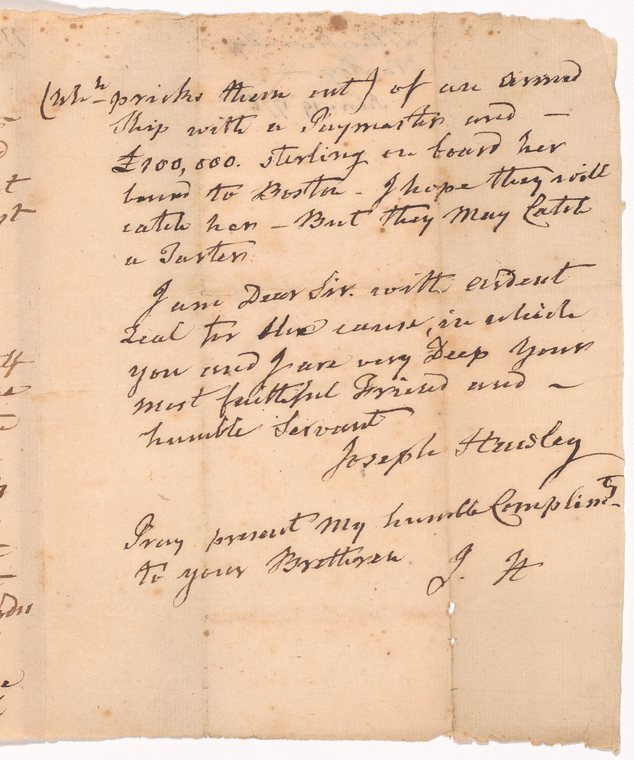 (wh:h pricks them out) of an armed
Ship with a Paymaster and —
£100,000. sterling on board her
bound to Boston - I hope they will
catch her - But they May Catch
a Tarter
I am Dear Sir. with ardent
Zeal for the cause, in which
you and I are very Deep Your
most faithful Friend and —
humble Servant
Joseph Hawley
Pray present My humble Complimts
to your Brethren J. H